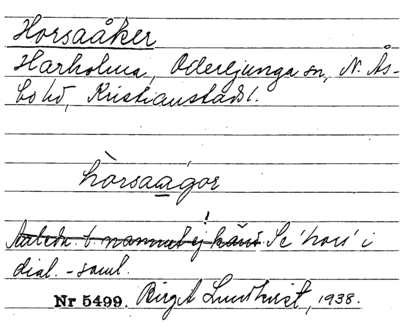 Horsaåker
Harholma, Oderljunga sn, N. Ås-
bo hd, Kristianstads l.
hòrsaágor
Anledn. t. namnet ej känd. Se 'hors' i
dial.-saml.
Nr 5499. Birgit Lundkvist, 1938.